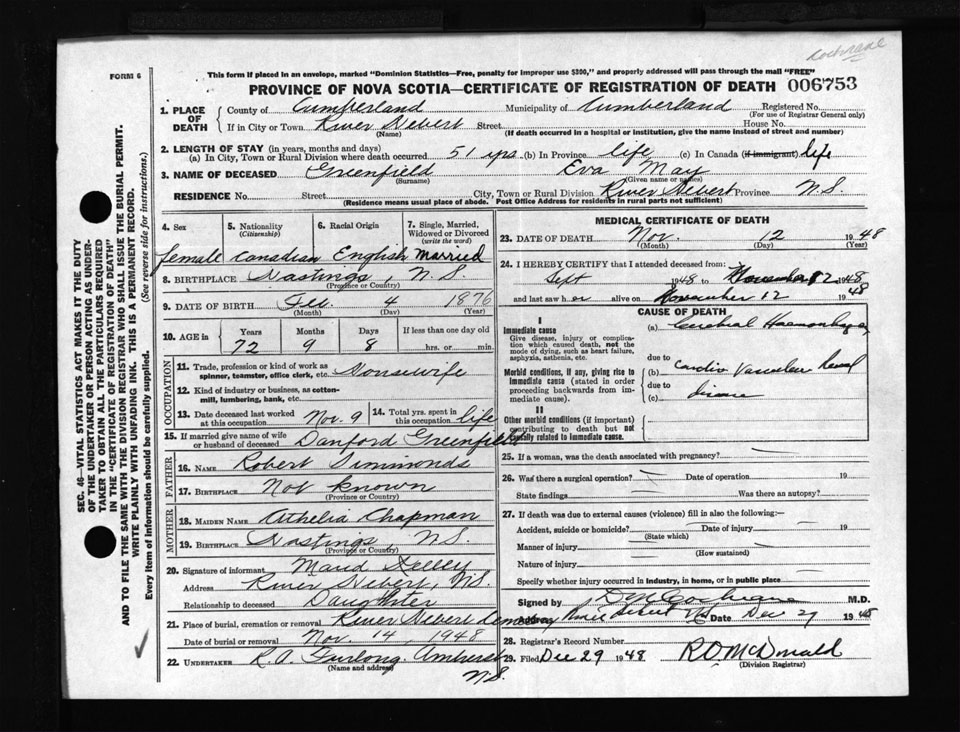 Cochrane
FORM 6
This form if placed in an envelope, marked "Dominion Statistics—Free, penalty for improper use $300," and properly addressed will pass through the mail "FREE"
PROVINCE OF NOVA SCOTIA—CERTIFICATE OF REGISTRATION OF DEATH 006753
1. PLACE OF DEATH County of Cumberland Municipality of Cumberland Registered No.
(For use of Registrar General only)
If in City or Town River Hebert Street House No.
(Name) (If death occurred in a hospital or institution, give the name instead of street and number)
2. LENGTH OF STAY (in years, months and days)
(a) In City, Town or Rural Division where death occurred 51 yrs (b) In Province life (c) In Canada (if immigrant) life
3. NAME OF DECEASED Greenfield Eva May
(Surname) (Given name or names)
RESIDENCE No. Street City, Town or Rural Division River Hebert Province N.S.
(Residence means usual place of abode. Post Office Address for residents in rural parts not sufficient)
4. Sex 5. Nationality (Citizenship) 6. Racial Origin 7. Single, Married, Widowed or Divorced (write the word)
female Canadian English Married
8. BIRTHPLACE Hastings N.S.
(Province or Country)
9. DATE OF BIRTH Feb. 4 1876
(Month) (Day) (Year)
10. AGE in Years Months Days If less than one day old
72 9 8 hrs. or min.
OCCUPATION
11. Trade, profession or kind of work as spinner, teamster, office clerk, etc. Housewife
12. Kind of industry or business, as cotton-mill, lumbering, bank, etc.
13. Date deceased last worked at this occupation Nov. 9 14. Total yrs. spent in this occupation life
15. If married give name of wife or husband of deceased Danford Greenfield
FATHER
16. NAME Robert Simmonds
17. BIRTHPLACE Not known
(Province or Country)
MOTHER
18. MAIDEN NAME Athelia Chapman
19. BIRTHPLACE Hastings, N.S.
(Province or Country)
20. Signature of informant Maud Kelley
Address River Hebert, N.S.
Relationship to deceased Daughter
21. Place of burial, cremation or removal River Hebert Cemetery
Date of burial or removal Nov. 14, 1948
22. UNDERTAKER R.A. Furlong. Amherst
(Name and address) N.S.
MEDICAL CERTIFICATE OF DEATH
23. DATE OF DEATH Nov. 12 1948
(Month) (Day) (Year)
24. I HEREBY CERTIFY that I attended deceased from:
Sept 1948 to November 12 1948
and last saw her alive on November 12 1948
CAUSE OF DEATH
I
Immediate cause (a) Cerebral Haemorrhage
Give disease, injury or complication which caused death, not the mode of dying, such as heart failure, asphyxia, asthenia, etc.
due to
Morbid conditions, if any, giving rise to immediate cause (stated in order proceeding backwards from immediate cause). (b) Cardio Vascular Renal
due to
(c) disease
II
Other morbid conditions (if important) contributing to death but not causally related to immediate cause.
25. If a woman, was the death associated with pregnancy?
26. Was there a surgical operation? Date of operation 19
State findings Was there an autopsy?
27. If death was due to external causes (violence) fill in also the following:—
Accident, suicide or homicide? Date of injury 19
(State which)
Manner of injury
(How sustained)
Nature of injury
Specify whether injury occurred in industry, in home, or in public place
Signed by D M Cochrane M.D.
Address River Hebert NS Date Dec 29 1948
28. Registrar's Record Number
29. Filed Dec 29 1948 R O McDonald
(Division Registrar)
SEC. 46—VITAL STATISTICS ACT MAKES IT THE DUTY
OF THE UNDERTAKER OR PERSON ACTING AS UNDER-
TAKER TO OBTAIN ALL THE PARTICULARS REQUIRED
IN THE "CERTIFICATE OF REGISTRATION OF DEATH"
AND TO FILE THE SAME WITH THE DIVISION REGISTRAR WHO SHALL ISSUE THE BURIAL PERMIT.
WRITE PLAINLY WITH UNFADING INK. THIS IS A PERMANENT RECORD.
Every item of information should be carefully supplied. (See reverse side for instructions.)